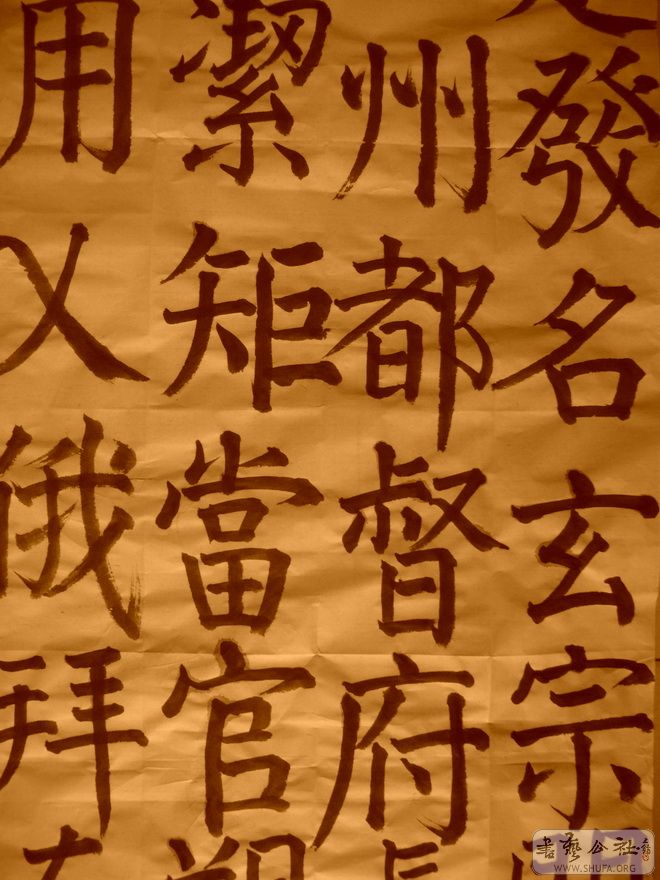 發名玄宗
州都督府
潔矩當官
用乂俄拜
書藝公社
WWW.SHUFA.ORG